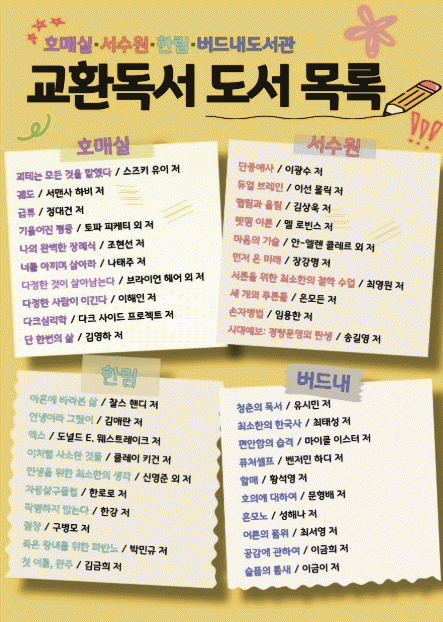 호매실·서수원·한림·버드내도서관
교환독서 도서 목록
호매실
괴테는 모든 것을 말했다 / 스즈키 유이 저
궤도 / 서맨사 하비 저
급류 / 정대건 저
기울어진 평등 / 토마 피케티 외 저
나의 완벽한 장례식 / 조현선 저
너를 아끼며 살아라 / 나태주 저
다정한 것이 살아남는다 / 브라이언 헤어 외 저
다정한 사람이 이긴다 / 이해인 저
다크심리학 / 다크 사이드 프로젝트 저
단 한번의 삶 / 김영하 저
서수원
단종애사 / 이광수 저
듀얼 브레인 / 이선 몰릭 저
떨림과 울림 / 김상욱 저
렛뎀 이론 / 멜 로빈스 저
마음의 기술 / 안-엘렌 클레르 외 저
먼저 온 미래 / 장강명 저
서른을 위한 최소한의 철학 수업 / 최영원 저
세 개의 푸른돌 / 은모든 저
손자병법 / 임용한 저
시대예보: 경량문명의 탄생 / 송길영 저
한림
마흔에 바라본 삶 / 찰스 핸디 저
안녕이라 그랬어 / 김애란 저
액스 / 도널드 E. 웨스트레이크 저
이처럼 사소한 것들 / 클레이 키건 저
인생을 위한 최소한의 생각 / 신영준 외 저
자몽살구클럽 / 한로로 저
작별하지 않는다 / 한강 저
절창 / 구병모 저
죽은 왕녀를 위한 파반느 / 박민규 저
첫 여름, 완주 / 김금희 저
버드내
청춘의 독서 / 유시민 저
최소한의 한국사 / 최태성 저
편안함의 습격 / 마이클 이스터 저
퓨처셀프 / 벤저민 하디 저
할매 / 황석영 저
호의에 대하여 / 문형배 저
혼모노 / 성해나 저
어른의 품위 / 최서영 저
공감에 관하여 / 이금희 저
슬픔의 틈새 / 이금이 저